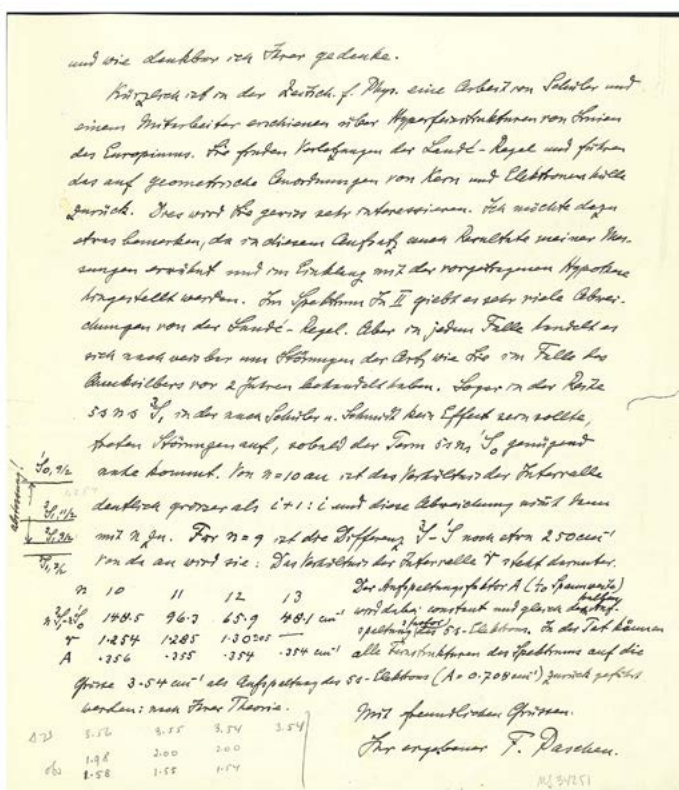 und wie dankbar ich Ihrer gedenke.
Kürzlich ist in der Zeitsch. f. Phys. eine Arbeit von Schüler und
einem Mitarbeiter erschienen über Hyperfeinstrukturen von Linien
des Europiums. Sie finden Verletzungen der Landé-Regel und führen
das auf geometrische Anordnungen von Kern und Elektronenhülle
zurück. Dies wird Sie gewiss sehr interessieren. Ich möchte dazu
etwas bemerken, da in diesem Aufsatz auch Resultate meiner Mes-
sungen erwähnt und im Einklang mit der vorgetragenen Hypothese
hingestellt werden. Im Spektrum In II giebt es sehr viele Abwei-
chungen von der Landé-Regel. Aber in jedem Falle handelt es
sich nachweisbar um Störungen der Art, wie Sie im Falle des
Quecksilbers vor 2 Jahren behandelt haben. Sogar in der Reihe
5s ns ³S₁ in der nach Schüler u. Schmidt kein Effect sein sollte,
treten Störungen auf, sobald der Term 5s ns ¹S₀ genügend
nahe kommt. Von n=10 an ist das Verhältnis der Intervalle
deutlich grösser als i+1 : i und diese Abweichung nimt dann
mit n zu. For n=9 ist die Differenz ³S-¹S noch etwa 250 cm⁻¹
von da an wird sie: Das Verhältnis der Intervalle r steht darunter.
Abstossung!
¹S₀, 9/2
³S₁, 11/2
³S₁, 9/2
³S₁, 7/2
n 10 11 12 13
n ³S₁-¹S₀ 148.5 96.3 65.9 48.1 cm⁻¹
r 1.254 1.285 1.30205 —
A .356 .355 .354 .354 cm⁻¹
Der Aufspaltungsfaktor A (to Spannweite)
wird dabei constant und gleich der halben Auf-
spaltung factor des 5s-Elektrons. In der Tat können
alle Feinstrukturen des Spektrums auf die
Grösse 3.54 cm⁻¹ als Aufspaltung des 5s-Elektrons (A = 0.708 cm⁻¹) zurück geführt
werden: nach Ihrer Theorie.
Mit freundlichen Grüssen.
Ihr ergebener F. Paschen.
3.56 3.55 3.54 3.54
1.98 2.00 2.00
obs 1.58 1.55 1.54